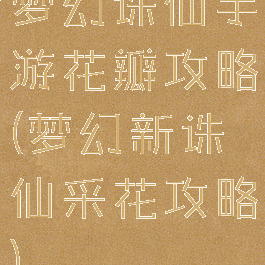 梦幻诛仙手
游花瓣攻略
(梦幻新诛
仙采花攻略
)